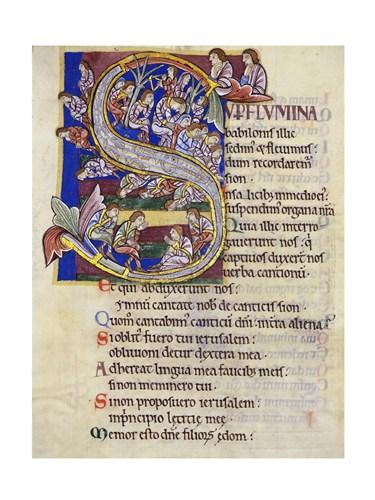 SUP FLUMINA
babilonis illic
sedim⁊ & fleuimus:
dum recordarem̃
sion.
Insalicib; inmedio ei⁊:
suspendim⁊ organa nr̃a
Quia illic interro
gauerunt nos: q̇
captiuos duxer̃t nos
uerba cantionũ.
Et qui abduxerunt nos:
ymnũ cantate nob̃ de canticis sion.
Quom̃ cantabim⁊ canticũ dñi: intr̃a aliena?
Si oblit⁊ fuero tui ierusalem:
obliuioni detur dextera mea.
Adhereat lingua mea faucib; meis:
si non meminero tui.
Si non proposuero ierusalem:
inprincipio letitię meę.
Memor esto dñe filioꝝ edom: